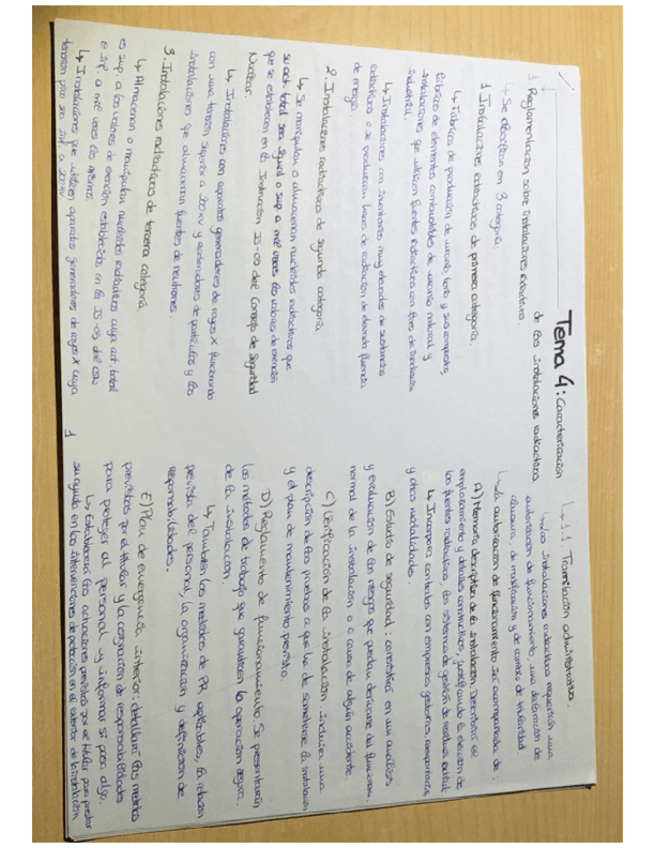 Tema 4: Caracterización
de las instalaciones radiactivas
1 Reglamentación sobre instalaciones radiactivas.
↳ Se clasifica en 3 categoría:
1. Instalaciones radiactivas de primera categoría.
↳ Fábricas de producción de uranio, torio y sus compuestos,
fábricas de elementos combustibles de uranio natural y
instalaciones que utilicen fuentes radiactivas con fines de irradiación
industrial.
↳ Instalaciones con inventarios muy elevados de sustancias
radiactivas o se produzcan haces de radiación de elevada fluencia
de energía.
2. Instalaciones radiactivas de segunda categoría
↳ Se manipulan o almacenan nucleidos radiactivos que
su act. total sea igual o sup a mil veces los valores de exención
que se establecen en la Instrucción IS-05 del Consejo de Seguridad
Nuclear.
↳ Instalaciones con aparatos generadores de rayos X funcionando
con una tensión superior a 200 kV y aceleradores de partículas y las
instalaciones que almacenan fuentes de neutrones.
3. Instalaciones radiactivas de tercera categoría
↳ Almacenan o manipulan nucleidos radiactivos cuya act. total
es sup. a los valores de exención establecidos en la IS-05 del CSN
e inf. a mil veces los mismos.
↳ Instalaciones que utilicen aparatos generadores de rayos X cuya
tensión pico sea inf. a 200 kV
1
↳ 1.1 Tramitación administrativa.
↳ Las instalaciones radiactivas requerirán una
autorización de funcionamiento, una declaración de
clausura, de modificación y de cambio de titularidad
↳ La autorización de funcionamiento irá acompañada de:
A) Memoria descriptiva de la instalación. Describirá el
emplazamiento y detalles constructivos, justificando la elección de
las fuentes radiactivas, los sistemas de gestión de residuos
↳ Incorpora contratos con empresas gestoras
y otras
B) Estudio de seguridad: consistirá en un análisis
y evaluación de los riesgos que puedan derivarse del funcionam.
normal de la instalación o a causa de algún accidente.
C) Verificación de la instalación. incluirá una
descripción de las pruebas a que ha de someterse la instalación
y el plan de mantenimiento previsto.
D) Reglamento de funcionamiento. Se presentarán
los métodos de trabajo que garanticen la operación segura
de la instalación.
↳ También las medidas de PR aplicables, la relación
prevista del personal, la organización y definición de
responsabilidades.
E) Plan de emergencia interior: detallará las medidas
previstas por el titular y la asignación de responsabilidades
para proteger al personal y informar si pasa algo.
↳ Establecerá las actuaciones previstas por el titular para prestar
su ayuda en las intervenciones de protección en el exterior de la instalación